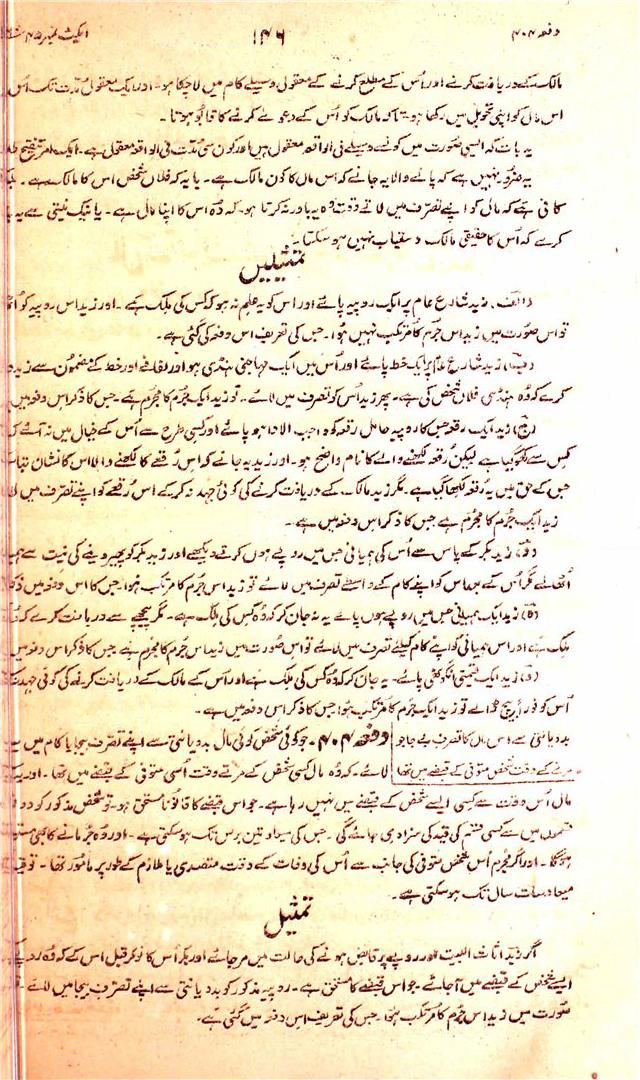 دفعہ ۴۰۴
۱۴۶
ایکٹ نمبر ۴۵
مالک کے دریافت کرنے اور اُس کے مطلع کرنے کے معقول وسیلے کام میں لا چکا ہو۔ اور ایک معقول مدت تک اُس
اس مال کو اپنی تحویل میں رکھا ہو تاکہ مالک کو اُس کے دعوے کرنے کا قابُو ہوتا۔
یہ بات کہ ایسی صورت میں کونسے وسیلے فی الواقعہ معقول ہیں اور کون سی مدت فی الواقعہ معقول ہے۔ ایک امر تنقیح طلب
یہ ضرور نہیں ہے کہ پانے والا یہ جانے کہ اس مال کا کون مالک ہے۔ یا یہ کہ فلاں شخص اس کا مالک ہے۔
کافی ہے کہ مال کو اپنے تصرف میں لاتے وقت وہ یہ باور نہ کرتا ہو کہ وُہ اس کا اپنا مال ہے۔ یا نیک نیتی سے یہ
کرے کہ اُس کا حقیقی مالک دستیاب نہیں ہو سکتا۔
تمثیلیں
(الف) زید شارع عام پر ایک روپیہ پائے اور اس کو یہ علم نہ ہو کہ کس کی ملک ہے۔ اور زید اس روپیہ کو
تو اس صورت میں زید اس جُرم کا مرتکب نہیں ہُوا۔ جس کی تعریف اس دفعہ کی گئی ہے۔
(ب) زید شارع عام پر ایک خط پائے اور اُس میں ایک مہاجنی ہنڈی ہو اور لفافے اور خط کے مضمون سے زید
کرے کہ وُہ ہنڈی فلاں شخص کی ہے۔ پھر زید اُس کو تصرف میں لائے۔ تو زید ایک جُرم کا مجرم ہے۔ جس کا ذکر اس دفعہ میں
(ج) زید ایک رقعہ جس کا روپیہ حامل رقعہ کو واجب الادا ہو پائے اور کسی طرح سے اُس کے خیال میں نہ آئے کہ
کس سے کھو گیا ہے لیکن رُقعہ لکھنے والے کا نام واضح ہو۔ اور زید یہ جانے کہ اِس رُقعے کا لکھنے والا اس کا نشان
جس کے حق میں یہ رقعہ لکھا گیا ہے۔ مگر زید مالک کے دریافت کرنے کی کوئی جہد نہ کر کے اس رُقعے کو اپنے تصرف میں
زید ایک جُرم کا مجرم ہے جس کا ذکر اس دفعہ میں ہے۔
(د) زید بکر کے پاس سے اُس کی ہمیانی جس میں روپے ہوں گرتے دیکھے اور زید بکر کو پھیر دینے کی نیت سے
اُٹھا لے مگر اُس کے بعد اس کو اپنے کام کے واسطے تصرف میں لائے تو زید اس جُرم کا مرتکب ہوا۔ جس کا اس دفعہ میں
(ہ) زید ایک ہمیانی جس میں روپے ہوں پائے یہ نہ جان کر کہ وُہ کس کی ملک ہے۔ مگر پیچھے سے دریافت کرے کہ
ملک ہے اور اس ہمیانی کو اپنے کام کیلئے تصرف میں لائے تو اس صورت میں زید اس جُرم کا مجرم ہے جس کا ذکر اس دفعہ میں
(و) زید ایک قیمتی انگوٹھی پائے۔ یہ نہ جان کر کہ وُہ کس کی ملک ہے اور اُس کے مالک کے دریافت کرنے کی کوئی جہد
اُس کو فوراً بیچ ڈالے تو زید ایک جُرم کا مرتکب ہوا جس کا ذکر اس دفعہ میں ہے۔
بددیانتی سے اُس مال کا تصرف بے جا جو
مرنے کے وقت شخص متوفی کے قبضے میں تھا
دفعہ ۴۰۴۔ جو کوئی شخص کوئی مال بددیانتی سے اپنے تصرف بیجا یا کام میں
لائے۔ کہ وُہ مال کسی شخص کے مرتے وقت اُسی متوفی کے قبضے میں تھا۔ اور یہ
مال اُس وقت سے کسی ایسے شخص کے قبضے میں نہیں رہا ہے۔ جو اس قبضے کا قانوناً مستحق ہو۔ تو شخص مذکور کو دو
قسموں میں سے کسی قسم کی قید کی سزا دی جائے گی۔ جس کی میعاد تین برس تک ہو سکتی ہے۔ اور وُہ جُرمانے کا بھی
ہوگا۔ اور اگر مجرم اُس شخص متوفی کی جانب سے اُس کی وفات کے وقت متصدی یا ملازم کے طور پر مامُور تھا۔ تو
میعاد سات سال تک ہو سکتی ہے۔
تمثیل
اگر زید اثاث البیت اور روپے پر قابض ہونے کی حالت میں مر جائے اور بکر اُس کا نوکر قبل اس کے کہ وُہ
ایسے شخص کے قبضے میں آ جائے۔ جو اس قبضے کا مستحق ہے۔ روپیہ مذکور کو بددیانتی سے اپنے تصرف بیجا میں لائے۔
صُورت میں زید اس جُرم کا مُرتکب ہوا۔ جس کی تعریف اس دفعہ میں کی گئی ہے۔